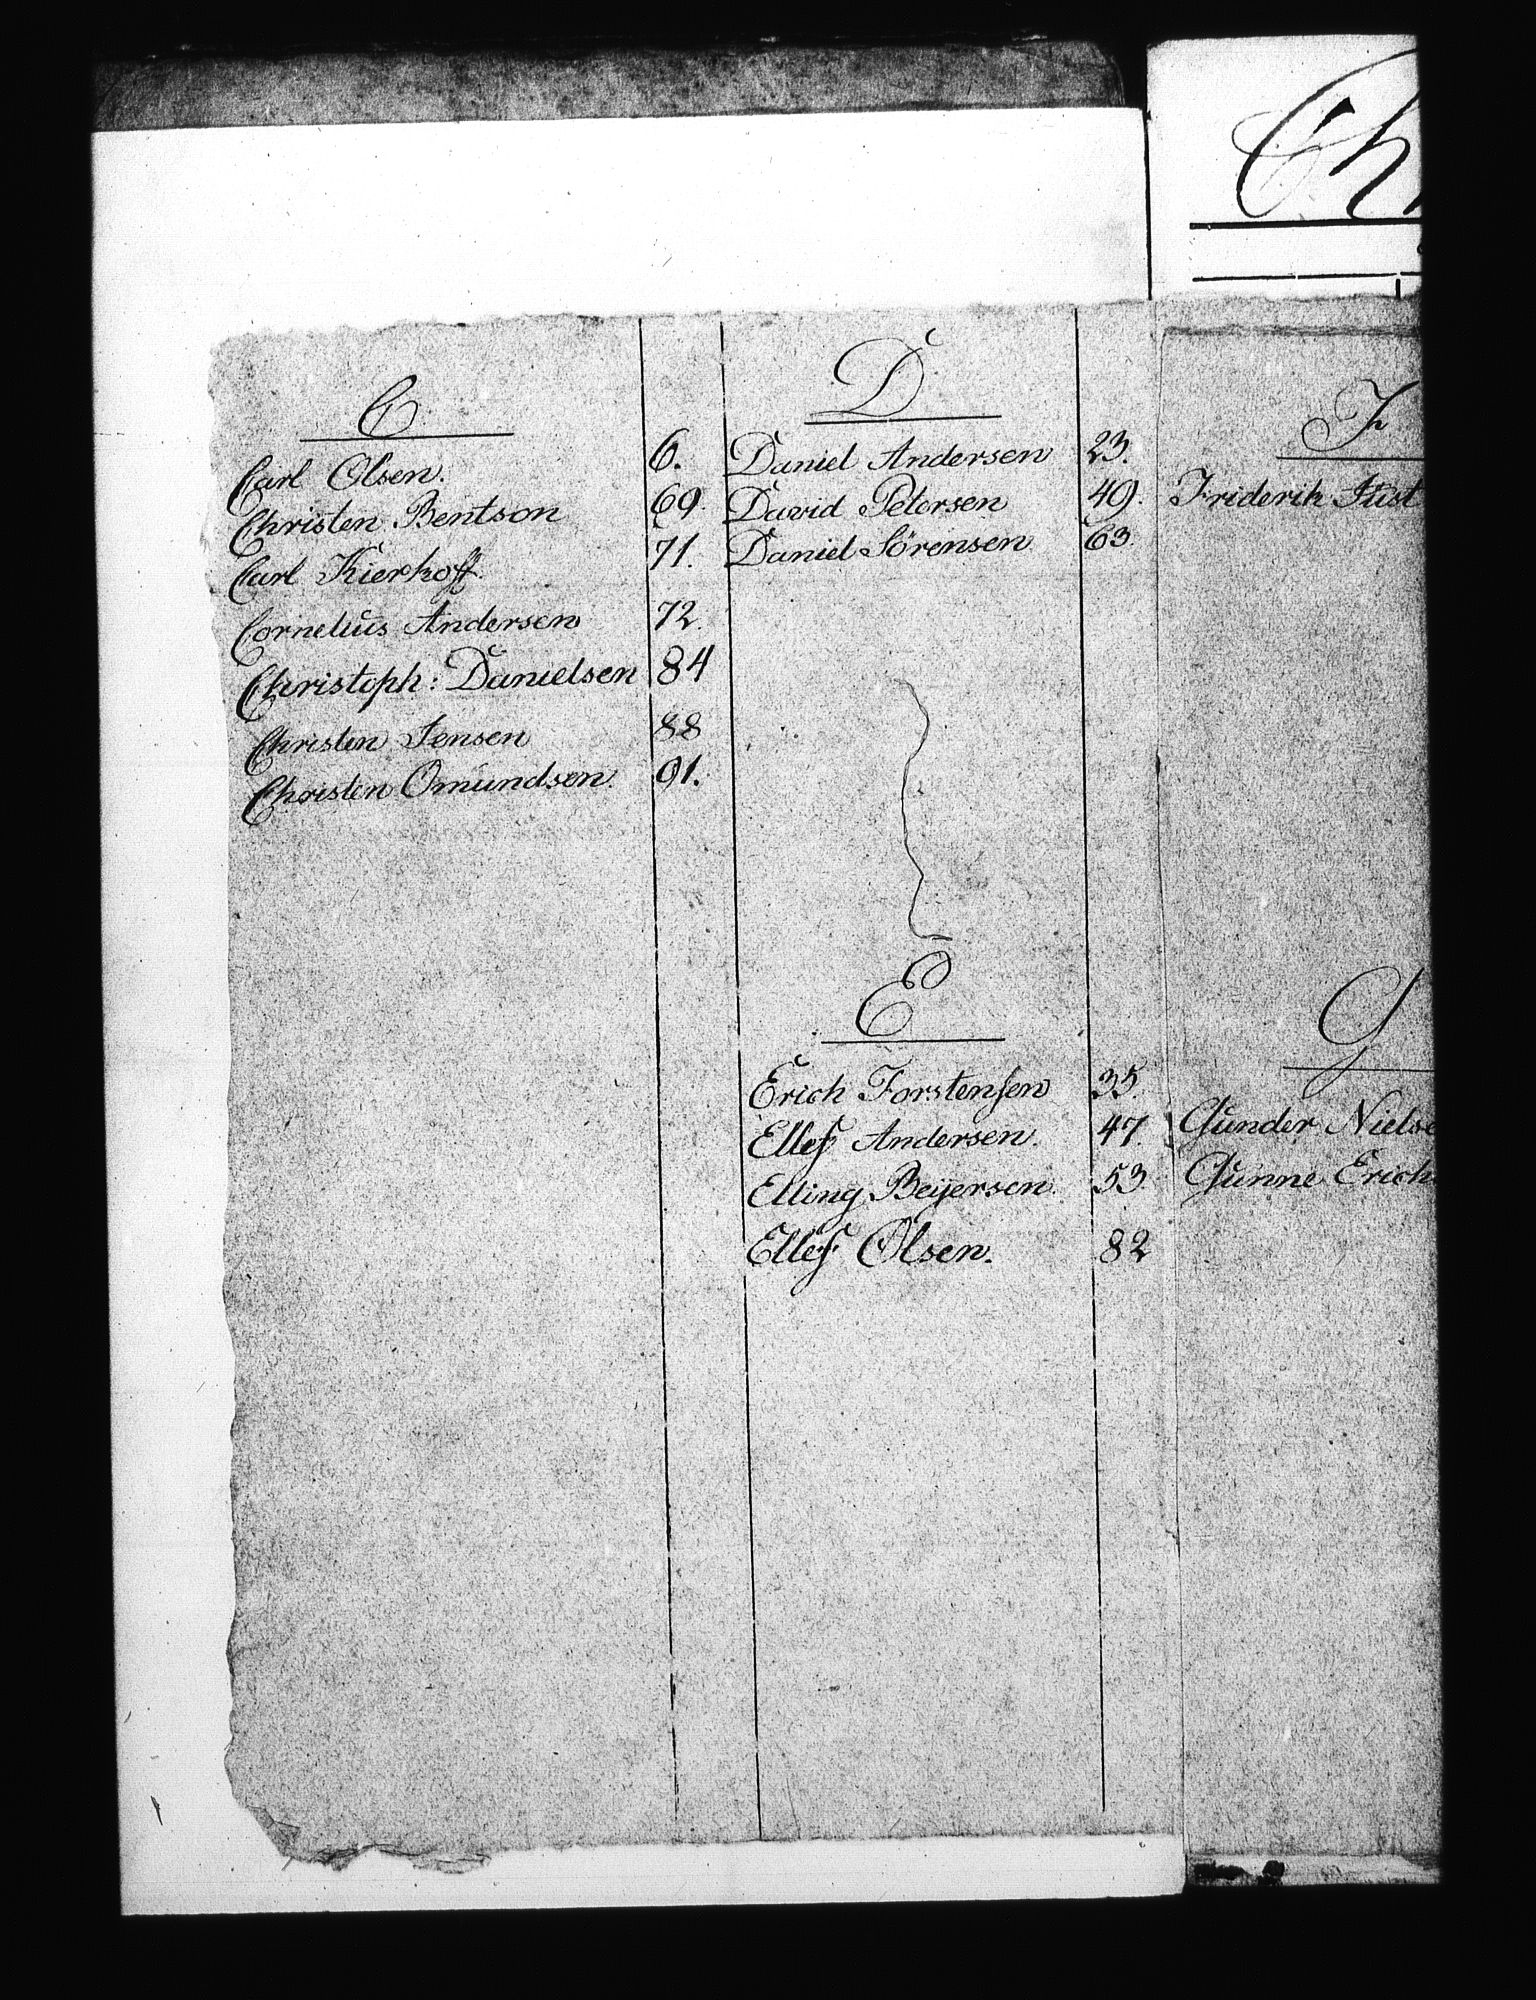 C.
Carl Olsen. 6.
Christen Bentson 69.
Carl Kierhoff. 71.
Cornelius Andersen 72.
Christoph: Danielsen 84
Christen Jensen 88
Christen Omundsen. 91.
D.
Daniel Andersen 23.
David Petersen 49.
Daniel Sörensen 63.
E
Erich Torstensen 35.
Ellef Andersen. 47.
Elling Beÿersen. 53.
Ellef Olsen. 82
Ch
F
Friderik Just
G
Gunder Niels
Gunne Erich